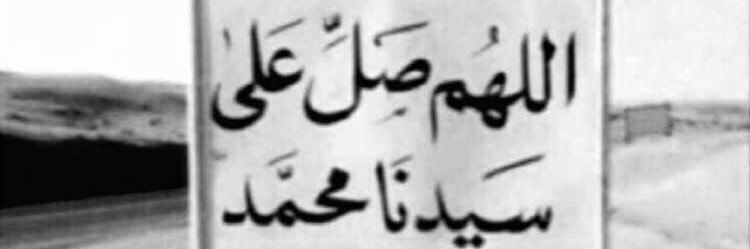 اللهُم صَلِّ عَلىٰ
سَيدنَا محمَّد